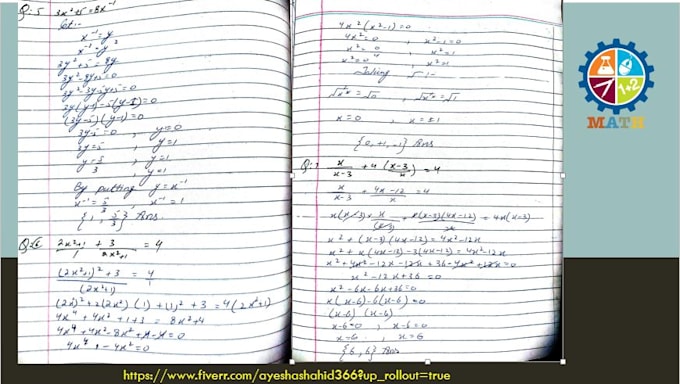 Q:5 3x²+5=8x⁻¹
Let:-
x⁻¹=y
x⁻²=y²
3y²+5=8y
3y²-8y+5=0
3y²-3y-5y+5=0
3y(y-1)-5(y-1)=0
(3y-5)(y-1)=0
3y-5=0 , y-1=0
3y=5 , y=1
y=5/3 , y=1
By putting y=x⁻¹
x⁻¹=5/3 , x⁻¹=1
Ans
2x²+1 + 3 = 4
1 2x²+1
(2x²+1)²+3 = 4
(2x²+1) 1
(2x²)²+2(2x²)(1)+(1)²+3=4(2x²+1)
4x⁴+4x²+1+3=8x²+4
4x⁴+4x²-8x²+4-4=0
4x⁴-4x²=0
4x²(x²-1)=0
4x²=0 , x²-1=0
x²=0/4 , x²=1
x²=0 , x²=1
Taking √
√x²=√0 , √x²=√1
x=0 , x=±1
{0,+1,-1} Ans
Q:7 x/x-3 + 4(x-3/x)=4
x/x-3 + 4x-12/x =4
x²+(x-3)(4x-12)=4x²-12x
x²+x(4x-12)-3(4x-12)=4x²-12x
x²+4x²-12x-12x+36-4x²+12x=0
x²-12x+36=0
x²-6x-6x+36=0
x(x-6)-6(x-6)=0
(x-6)(x-6)
x-6=0 , x-6=0
x=6 , x=6
{6,6} Ans
MATH
1+2
https://www.fiverr.com/ayeshashahid366?up_rollout=true